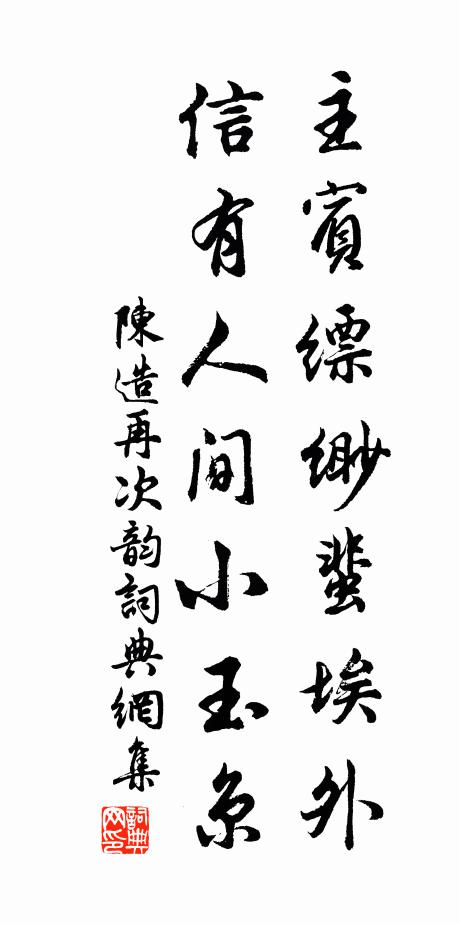 主賓縹緲蜚埃外
信有人間小玉京
陳造再次韵詞典網集
詞典网印